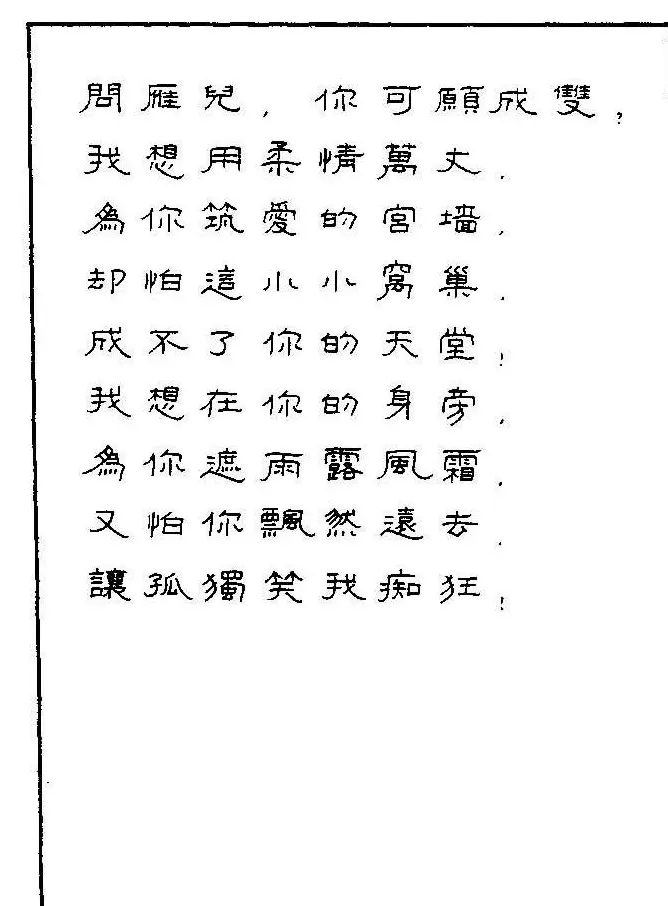 問雁兒，你可願成雙，
我想用柔情萬丈．
為你筑愛的宮墙，
却怕這小小窩巢，
成不了你的天堂！
我想在你的身旁，
為你遮雨露風霜．
又怕你飄然遠去．
讓孤獨笑我痴狂！